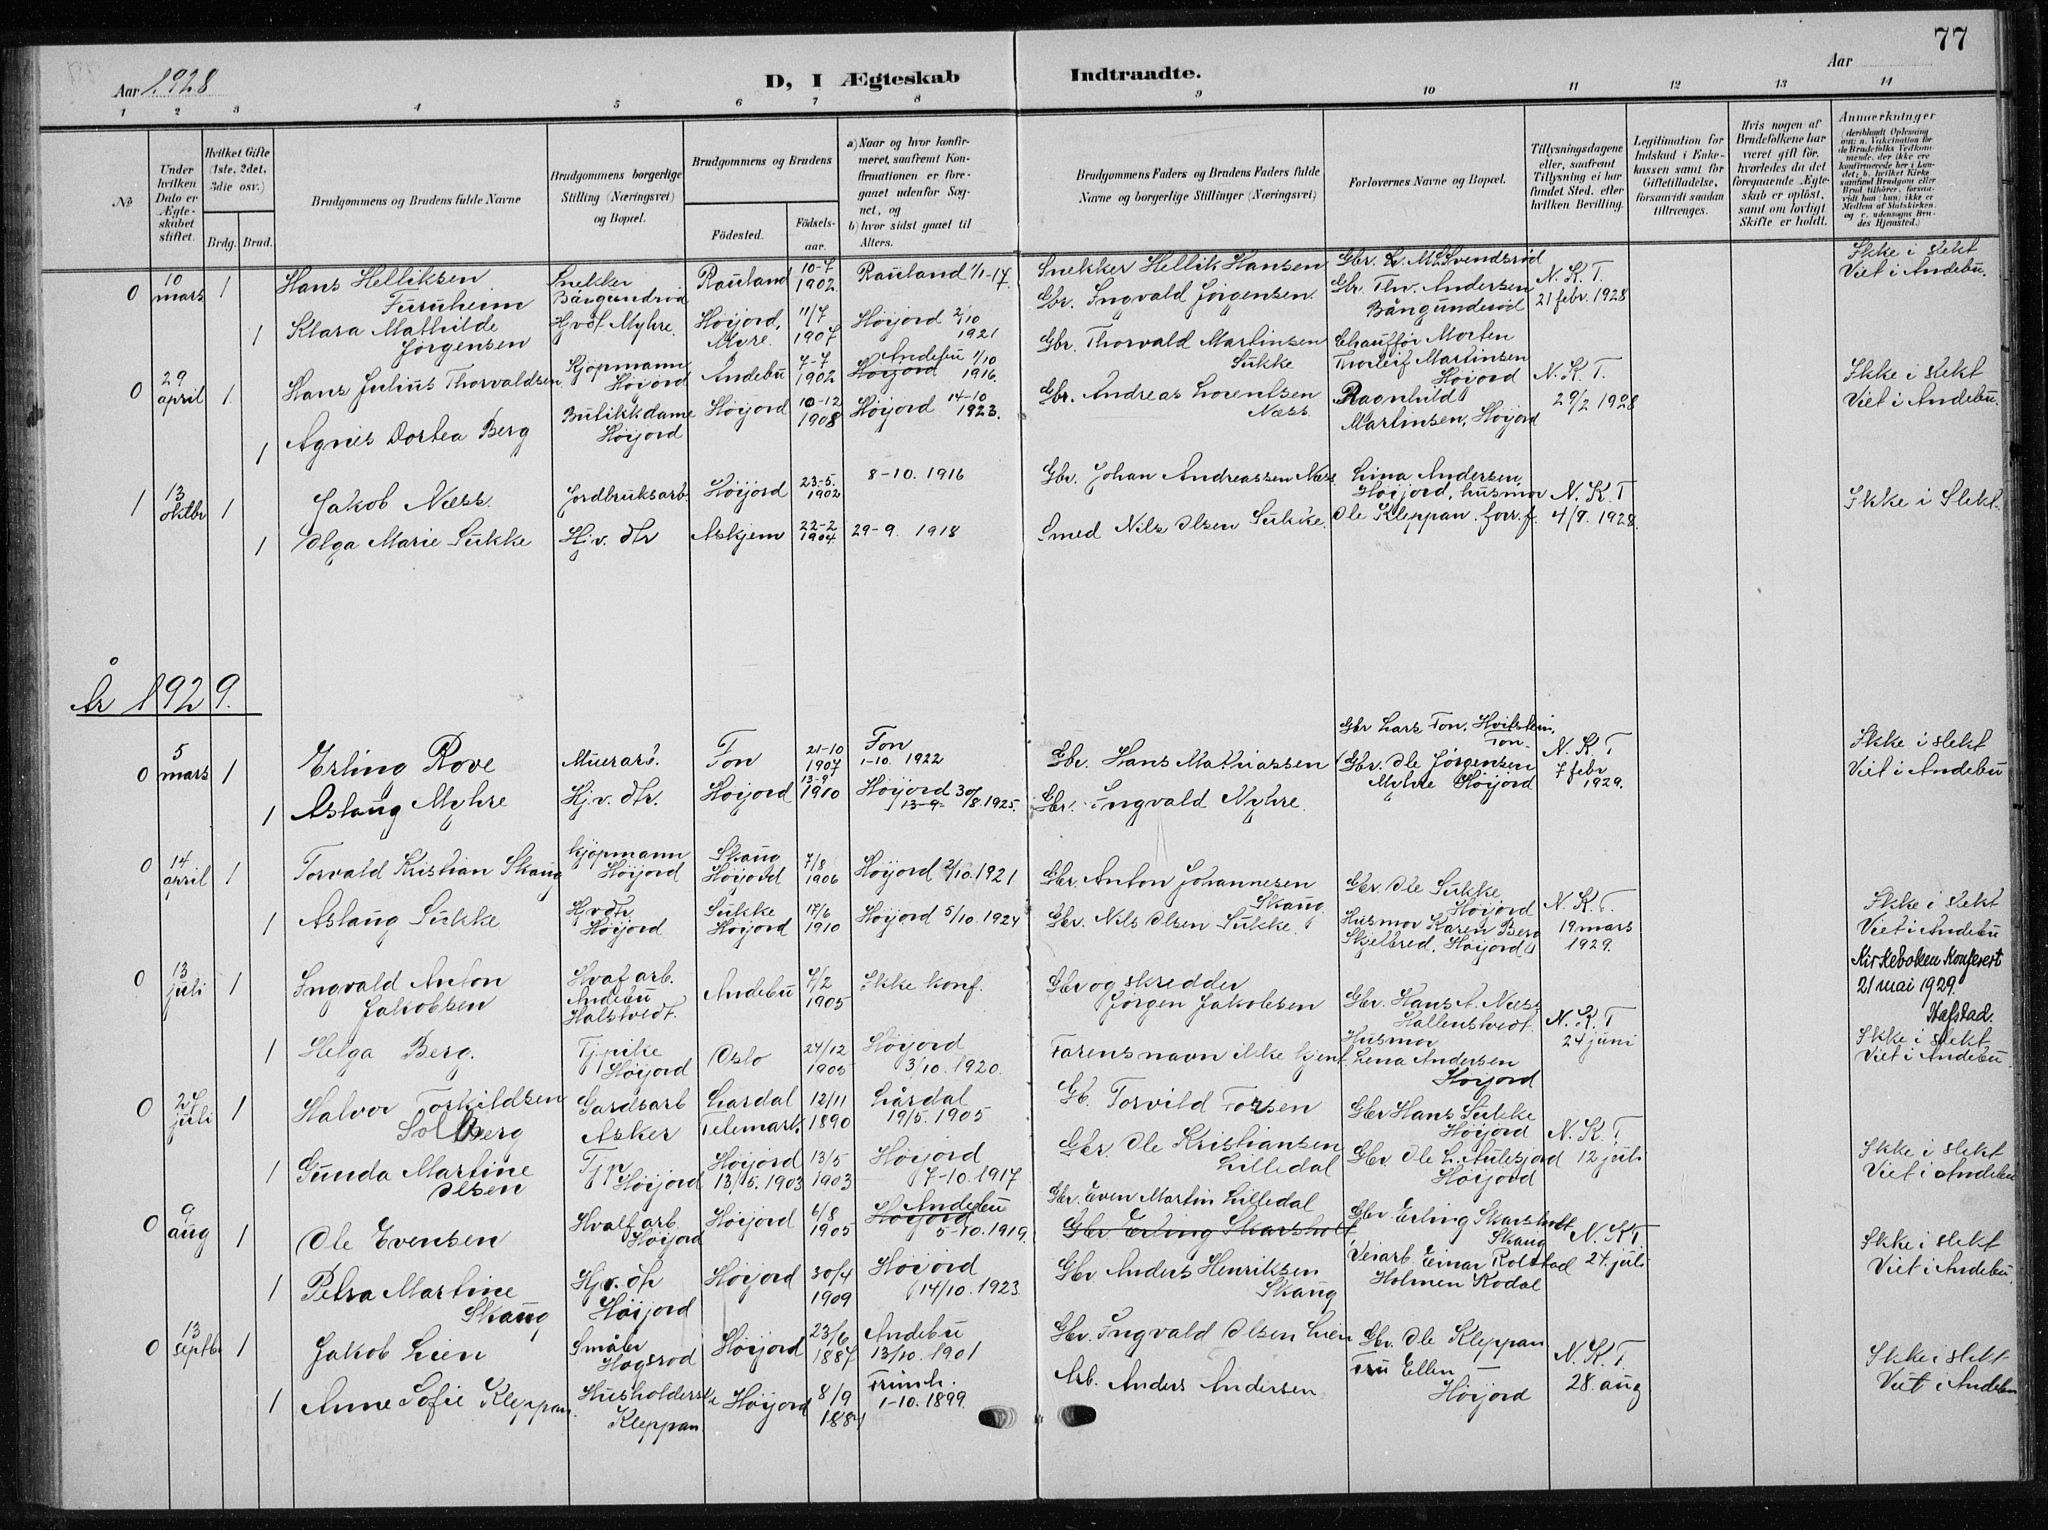 77
Aar 1928
D, I Ægteskab Indtraadte.
Aar
1 2 3 4 5 6 7 8 9 10 11 12 13 14
No
Under hvilken Dato er Ægteskabet stiftet.
Hvilket Gifte (1ste, 2det, 3die osv.)
Brdg. Brud.
Brudgommens og Brudens fulde Navne
Brudgommens borgerlige Stilling (Næringsvei) og Bopæl.
Brudgommens og Brudens
Födested.
Födselsaar.
a) Naar og hvor konfirmeret, saafremt Konfirmationen er foregaaet udenfor Sognet, og
b) hvor sidst gaaet til Alters.
Brudgommens Faders og Brudens Faders fulde Navne og borgerlige Stillinger (Næringsvei)
Forlovernes Navne og Bopæl.
Tillysningsdagene eller, saafremt Tillysning ei har fundet Sted, efter hvilken Bevilling.
Legitimation for Indskud i Enkekassen samt for Giftetilladelse, forsaavidt saadan tiltrænges.
Hvis nogen af Brudefolkene har været gift för, hvorledes da det foregaaende Ægteskab er oplöst, samt om lovligt Skifte er holdt.
Anmerkninger
0 10 mars 1 Hans Helliksen Furuheim Snekker Bångundrød Rauland 10-7 1902 Rauland 1/1-17. Snekker Hellik Hansen Gbr. L. M. Svendsrød N. K. T. 21 febr. 1928 Ikke i slekt Viet i Andebu.
1 Klara Mathilde Jørgensen Hjv dt. Myhre. Høijord, Myre. 11/7 1907 Høijord 2/10 1921 Gbr. Ingvald Jørgensen. Gbr. Thv. Andersen Bångunderød
0 29 april 1 Hans Julius Thorvaldsen Kjøpmann Høijord Andebu 7-7 1902 Andebu 1/10 Høijord 1916. Gbr. Thorvald Martinsen Sukke Chauffør Morten Thorleif Martinsen Høijord N. K. T. 29/2 1928 Ikke i slekt Viet i Andebu.
1 Agnes Dortea Berg Butikkdame Høijord Høijord 10-12 1908 Høijord 14-10 1923. Gbr. Andreas Lorentsen Næss Ragnhild Martinsen, Høijord
1 13 oktbr 1 Jakob Næss. Jordbruksarb Høijord 23-5. 1902 8-10. 1916 Gbr. Johan Andreassen Næss Lina Andersen, Høijord, husmor N. K. T 4/9. 1928. Ikke i Slekt.
1 Olga Marie Sukke Hj.v. dtr Askjem 22-2 1904 29-9. 1918 Smed Nils Olsen Sukke. Ole Kleppan. forr. f.
År 1929.
0 5 mars 1 Erling Rove Muerarb. Fon 21-10 1907 Fon 1-10. 1922 Gbr. Hans Mathiassen Gbr Lars Fon, Hvitstein, Fon. N. K. T 7 febr 1929. Ikke i slekt Viet i Andebu
1 Aslaug Myhre Hj.v. dtr. Høijord 13-9 1910 Høijord 30/8. 1925. 13-9- Gbr. Ingvald Myhre. Gbr. Ole Jørgensen Myhre Høijord
0 14 april 1 Torvald Kristian Skaug Kjøpmann Høijord Skaug Høijord 7/8 1906 Høijord 2/10. 1921 Gbr. Anton Johannesen Skaug Gbr. Ole Sukke Høijord N. K. T. 19 mars 1929. Ikke i slekt Viet i Andebu
1 Aslaug Sukke Hjv dtr. Høijord Sukke Høijord 17/6 1910 Høijord 5/10. 1924 Gbr. Nils Olsen Sukke. Husmor Karen Berg Skjelbred, Høijord
Kirkeboken Konferert 21 mai 1929. Stafstad.
0 13 juli 1 Ingvald Anton Jakobsen Hvalf arb. Andebu Halstvedt. Andebu 7/2 1905 Ikke konf. Gbr og skredder Jørgen Jakobsen Gbr. Hans A. Næss Hallenstvedt. N. K. T 24 juni Ikke i slekt Viet i Andebu
1 Helga Berg. Tj.pike Høijord Oslo 24/12 1905 Høijord 3/10. 1920. Farens navn ikke kjent. Husmor Lena Andersen Høijord
0 27 juli 1 Halvor Torkildsen Solberg Gardsarb Asker Lardal Telemark. 12/11 1890 Lårdal 19/5. 1905 Gb. Torvild Torsen Gbr Hans Sukke Høijord N. K. T 12 juli Ikke i slekt Viet i Andebu
1 Gunda Martine Olsen Tjp Høijord Høijord 13/5. 1903 13/5 1903 Høijord 7-10. 1917 Gbr. Ole Kristiansen Lilledal Gbr Ole L. Aulesjord Høijord
0 9 aug 1 Ole Evensen Hvalf arb. Høijord Høijord 6/8 1905 Andebu Høijord 5-10. 1919. Gbr. Even Martin Lilledal Gbr Erling Skarsholt Gbr Erling Skarsholt Skaug N. K. T. 24. juli Ikke i slekt Viet i Andebu
1 Petra Martine Skaug Hj.v. dtr Høijord Høijord 30/4 1909 Høijord 14/10. 1923 Gbr Anders Henriksen Skaug Veiarb Einar Rolstad Holmen Kodal
0 13 septbr 1 Jakob Lien Småbr Hogsrød Høijord 23/6 1887 Andebu 13/10. 1901 Gbr. Ingvald Olsen Lien Gbr. Ole Kleppan N. K. T. 28. aug Ikke i slekt Viet i Andebu
1 Anne Sofie Kleppan. Husholderske Kleppan. Høijord 8/9 1884 Trumb. 1-10. 1899. Arb. Anders Andersen Fru Ellen — Høijord